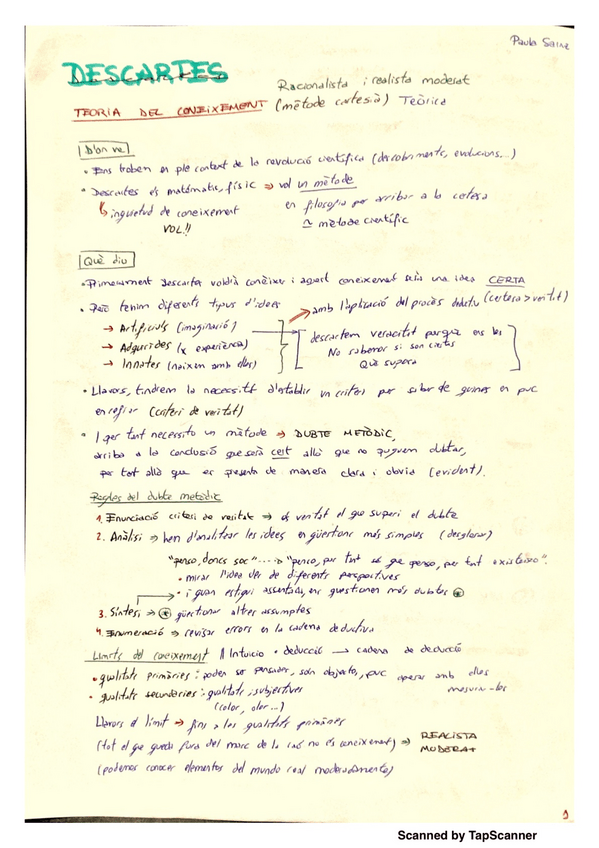 Paula Sainz
DESCARTES
Racionalista i realista moderat
TEORIA DEL CONEIXEMENT (mètode cartesià) Teòrica
D'on ve
• Ens troben en ple context de la revolució científica (descobriments, evolucions...)
• Descartes és matemàtic, físic ⇒ vol un mètode
↳ inquietud de coneixement
VOL!!
en filosofia per arribar a la certesa
≃ mètode científic
Què diu
• Primerament Descartes voldrà conèixer i aquest coneixement serà una idea CERTA
• Però tenim diferents tipus d'idees
→ amb l'aplicació del procés deductiu (certesa > veritat)
→ Artificials (imaginació)
→ Adquirides (x experiència)
→ Innates (naixem amb elles)
descartem veracitat perquè en les
No sabem si son certes
Què supera
• Llavors, tindrem la necessitat d'establir un criteri per saber de quines en puc
en refiar (criteri de veritat)
• I per tant necessito un mètode → DUBTE METÒDIC,
arriba a la conclusió que serà cert allò que no puguem dubtar,
per tot allò que es presenta de manera clara i obvia (evident).
Regles del dubte metòdic
1. Enunciació criteri de veritat ⇒ és veritat el que superi el dubte
2. Anàlisi ⇒ hem d'analitzar les idees en qüestions més simples (desglosar)
"penso, doncs soc" ...→ "penso, per tant sé que penso, per tant existeixo".
• mirar l'idea des de diferents perspectives
• i quan estigui assentada, en questionen més dubtes ⊛
3. Síntesi ⇒ ⊛ qüestionar altres assumptes
4. Enumeració ⇒ revisar errors en la cadena deductiva
Límits del coneixement // Intuïció • deducció → cadena de deducció
• qualitats primàries: poden ser pensades, són objectes, puc operar amb elles
mesurar-les
• qualitats secundàries: qualitats subjectives
(color, olor...)
Llavors el límit → fins a les qualitats primàries
(tot el que queda fora del marc de la raó no és coneixement) ⇒ REALISTA
MODERAT
(podemos conocer elementos del mundo real moderadamente)
1
Scanned by TapScanner